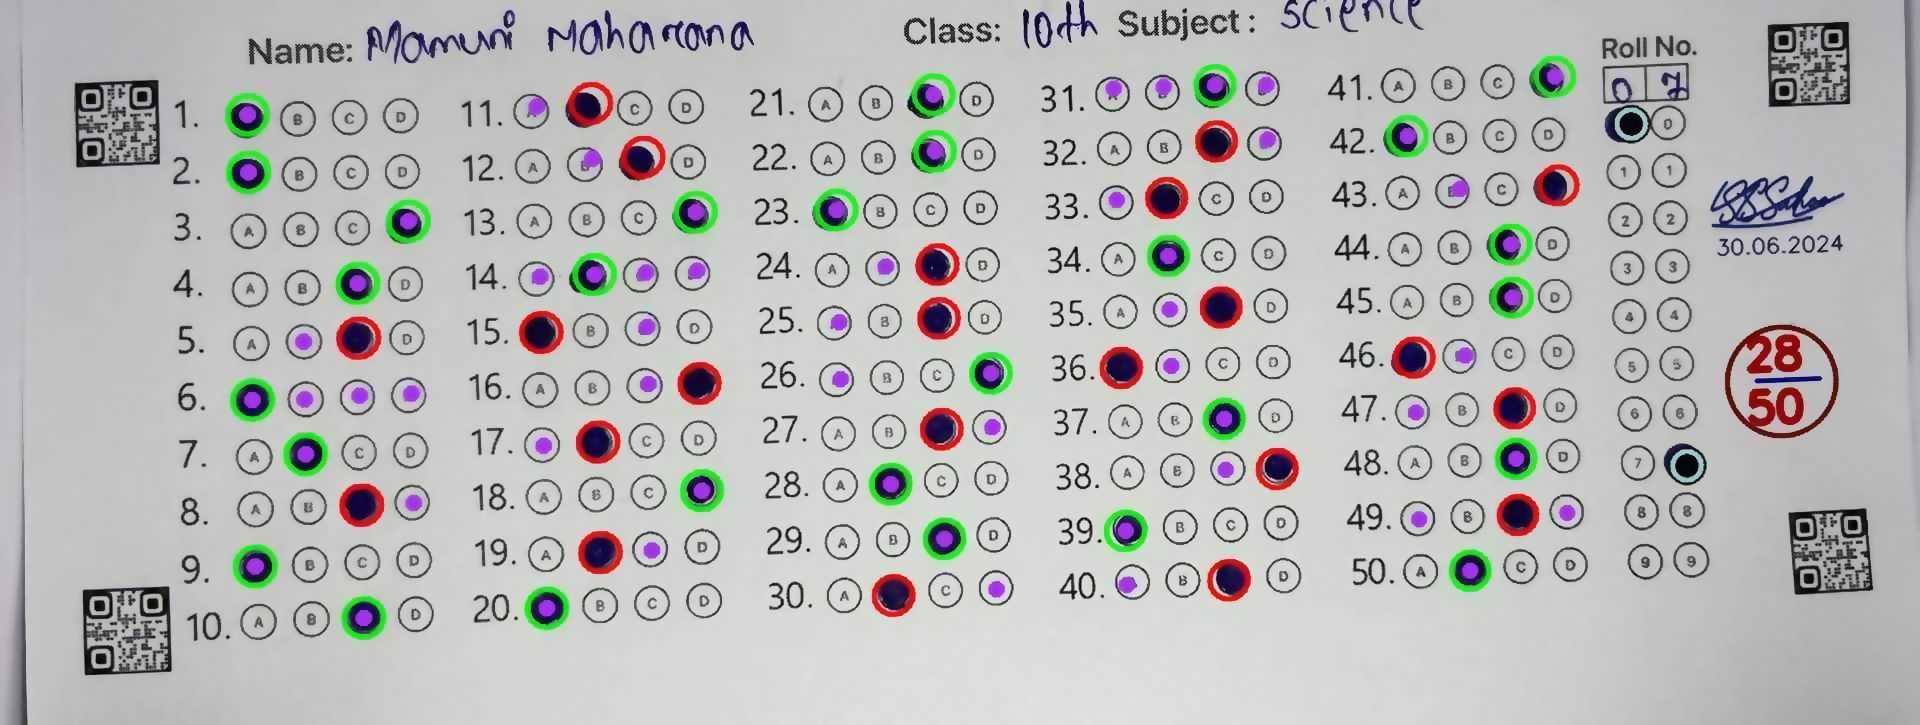 Name: Mamuni Maharana Class: 10th Subject: Science
Roll No.
0 7
1. B C D
2. B C D
3. A B C
4. A B D
5. A D
6.
7. A C D
8. A B
9. B C D
10. A B D
11. C D
12. A D
13. A B C
14.
15. B D
16. A B
17. C D
18. A B C
19. A D
20. B C D
21. A B D
22. A B D
23. B C D
24. A D
25. B D
26. B C
27. A B
28. A C D
29. A B D
30. A C
31.
32. A B
33. C D
34. A C D
35. A D
36. C D
37. A B D
38. A B
39. B C D
40. B D
41. A B C
42. B C D
43. A C
44. A B D
45. A B D
46. C D
47. B D
48. A B D
49. B
50. A C D
0
1 1
2 2
3 3
4 4
5 5
6 6
7
8 8
9 9
30.06.2024
28
50